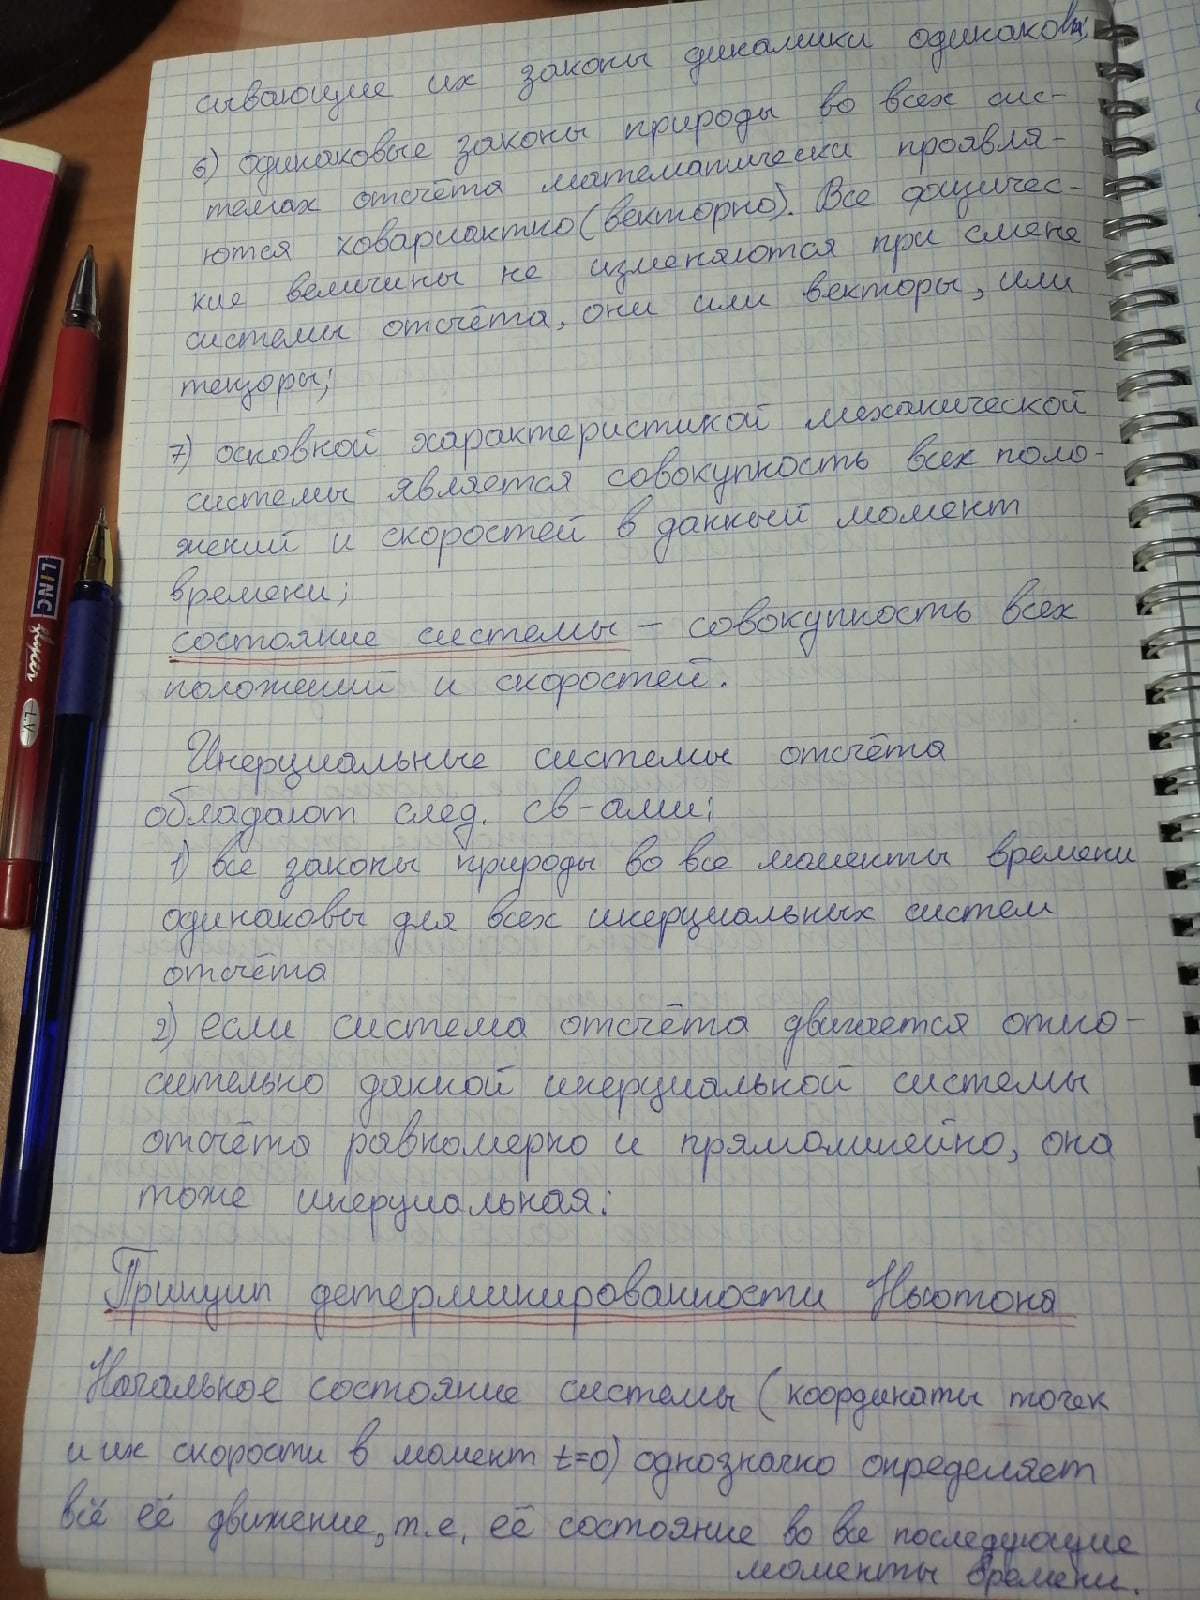 сывающие их законы динамики одинаковы;
6) одинаковые законы природы во всех сис-
темах отсчёта математически проявля-
ются ковариантно (векторно). Все физичес-
кие величины не изменяются при смене
системы отсчёта, они или векторы, или
тензоры;
7) основной характеристикой механической
системы является совокупность всех поло-
жений и скоростей в данный момент
времени;
состояние системы - совокупность всех
положений и скоростей.
Инерциальные системы отсчёта
обладают след. св-ами:
1) все законы природы во все моменты времени
одинаковы для всех инерциальных систем
отсчёта
2) если система отсчёта движется отно-
сительно данной инерциальной системы
отсчёта равномерно и прямолинейно, она
тоже инерциальная:
Принцип детерминированности Ньютона
Начальное состояние системы (координаты точек
и их скорости в момент t=0) однозначно определяет
всё её движение, т.е. её состояние во все последующие
моменты времени.
LINC
LV